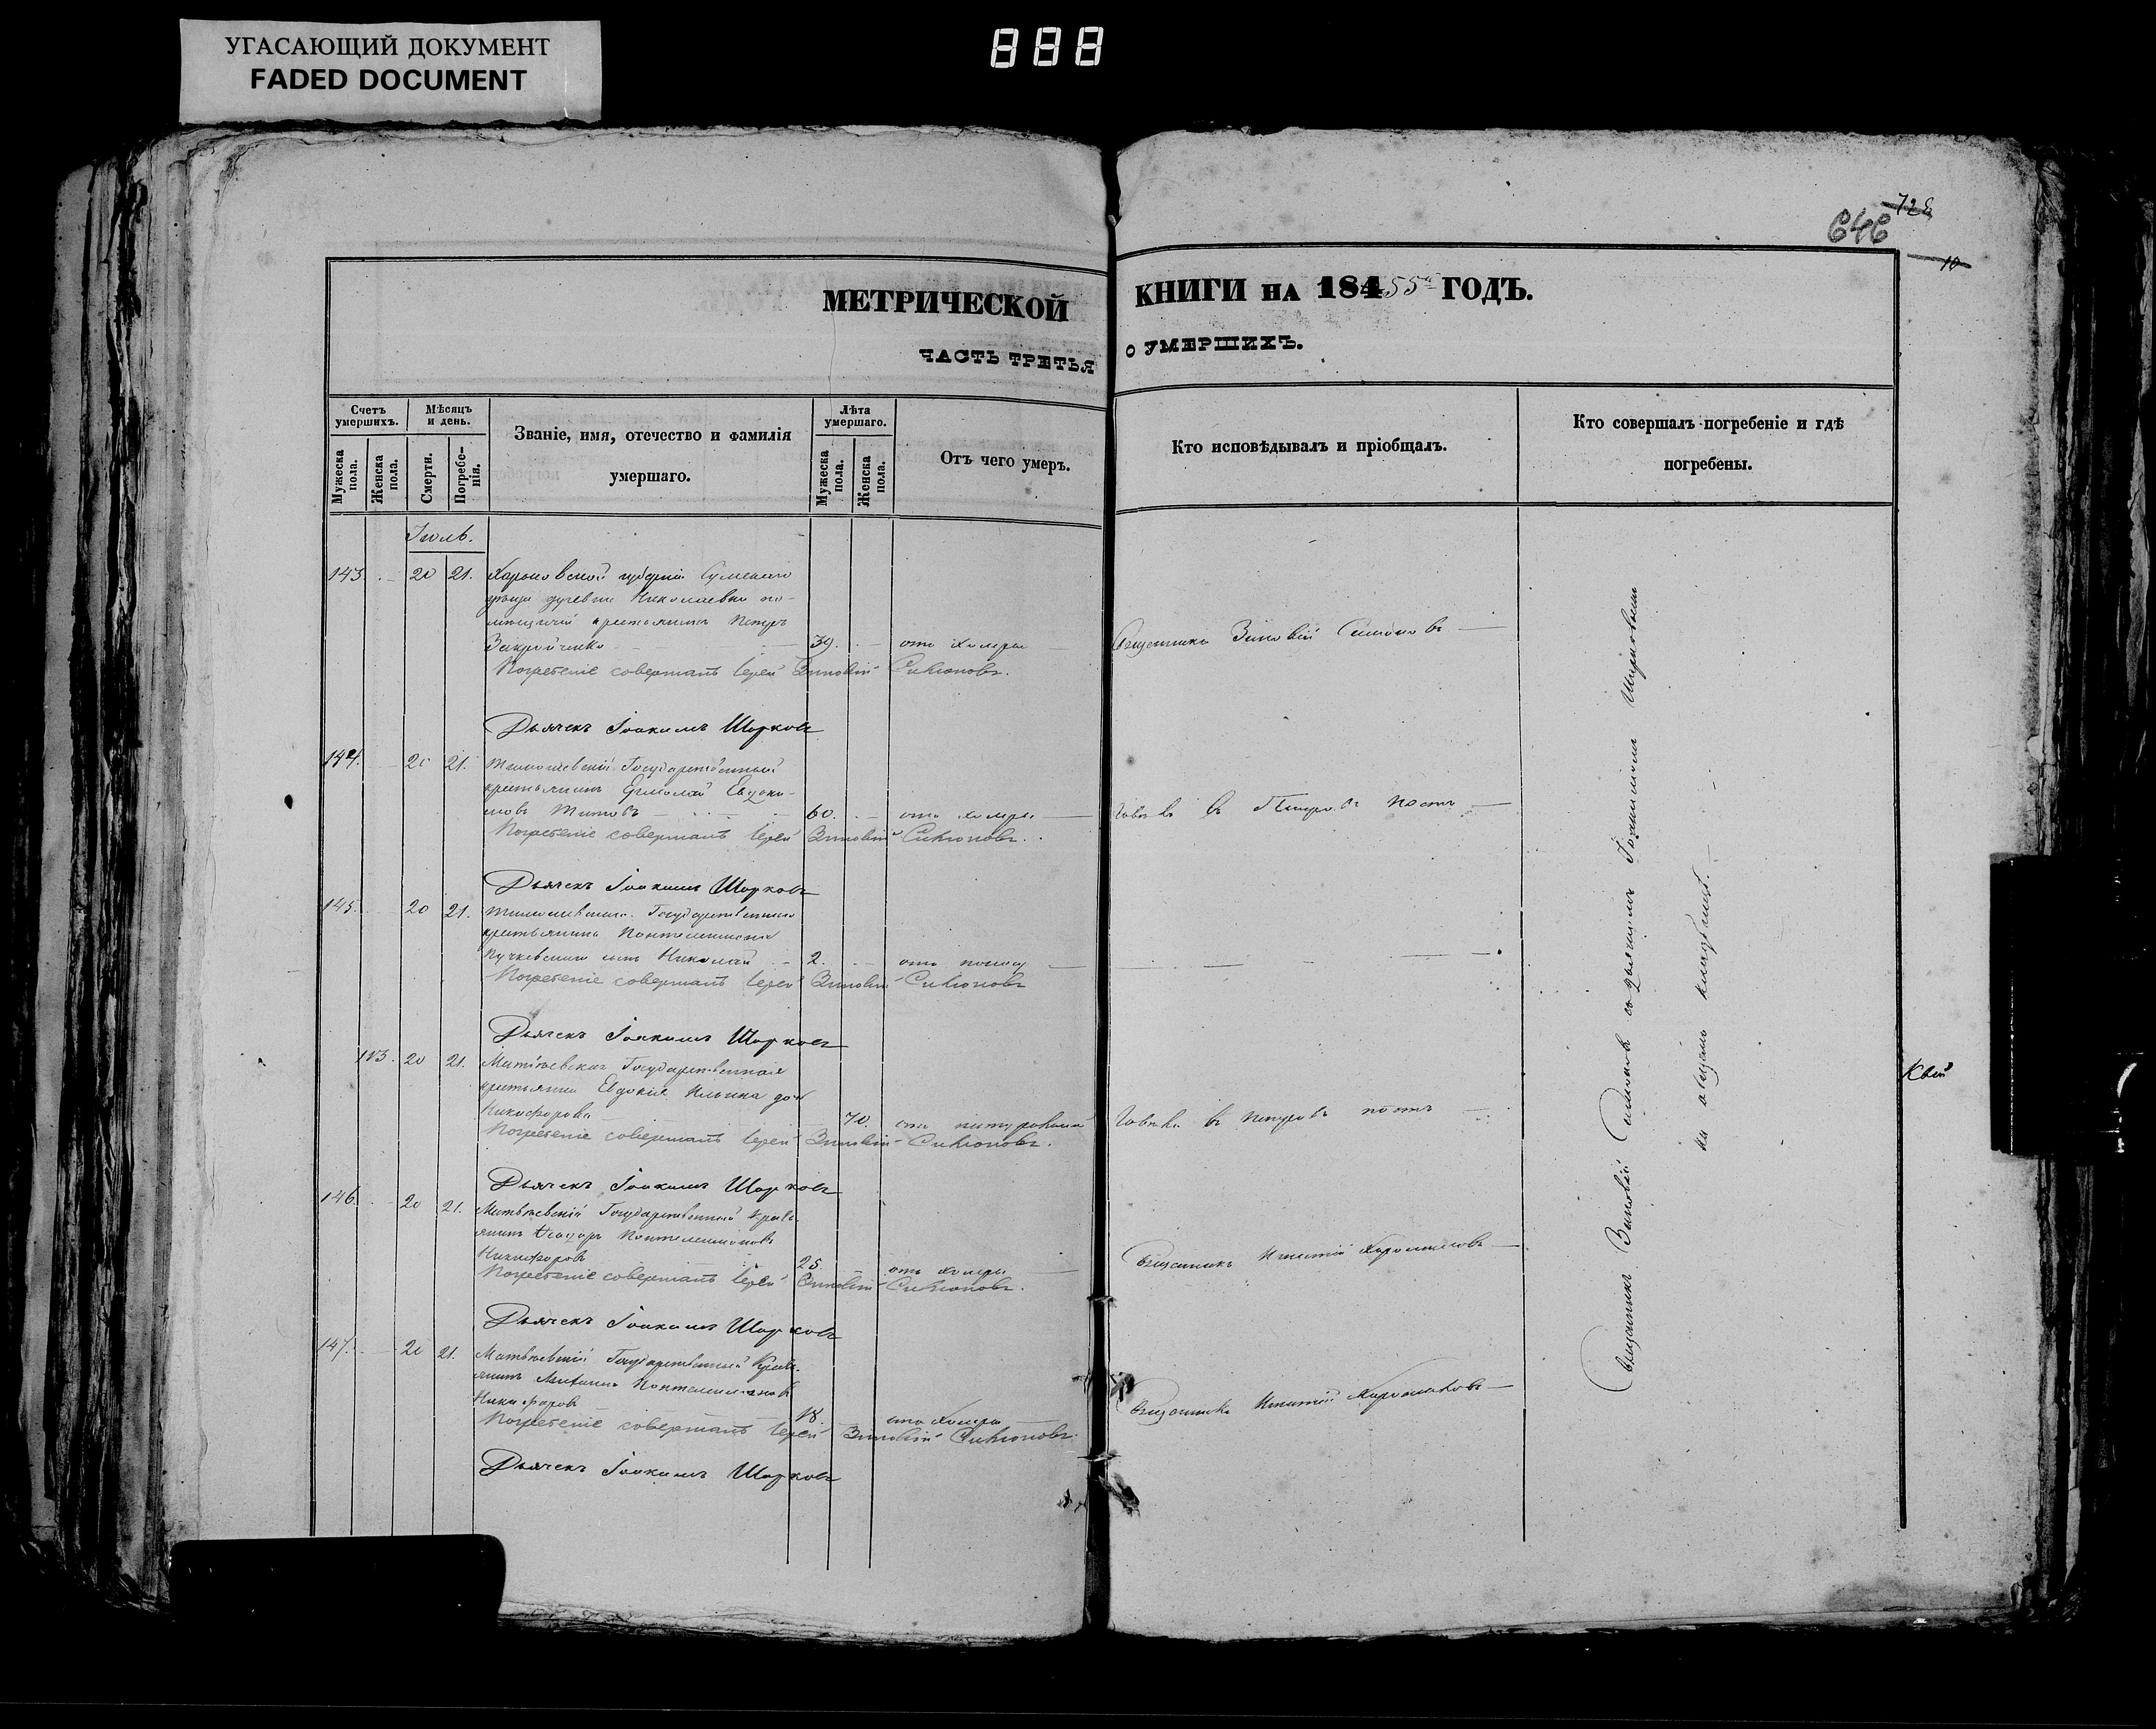 УГАСАЮЩИЙ ДОКУМЕНТ
FADED DOCUMENT
888
728
646
10
МЕТРИЧЕСКОЙ КНИГИ НА 18455 ГОДЪ.
ЧАСТЬ ТРЕТЬЯ О УМЕРШИХЪ.
Счетъ умершихъ.
Мужеска пола.
Женска пола.
Мѣсяцъ и день.
Смерти.
Погребенія.
Званіе, имя, отечество и фамилія
умершаго.
Лѣта умершаго.
Мужеска пола.
Женска пола.
Отъ чего умеръ.
Кто исповѣдывалъ и пріобщалъ.
Кто совершалъ погребеніе и гдѣ
погребены.
Іюль.
143. 20 21. Харьковской губерніи Сумскаго
уѣзда деревни Николаевки по-
мѣщичій крестьянинъ Петръ
39. отъ холеры Священникъ Зиновій Симоновъ
Погребеніе совершалъ Іерей Зиновій Симоновъ.
Дьячекъ Іоакимъ Шарковъ
144. 20 21. Государственный
крестьянинъ Ермолай Евдоки-
мовъ Титовъ 60. отъ холеры Говѣлъ въ Петровъ постъ
Погребеніе совершалъ Іерей Зиновій Симоновъ.
Дьячекъ Іоакимъ Шарковъ
145. 20 21. Государственнаго
крестьянина
сынъ Николай 2. отъ поносу
Погребеніе совершалъ Іерей Зиновій Симоновъ
Дьячекъ Іоакимъ Шарковъ
113. 20 21. Государственная
крестьянка Евдокія Ильина
Никифорова 70. Говѣла въ Петровъ постъ
Погребеніе совершалъ Іерей Зиновій Симоновъ.
Дьячекъ Іоакимъ Шарковъ
146. 20 21. Матвѣевскій Государственный крест.
янинъ Ѳеодоръ Пантелеимоновъ
Никифоровъ 25. отъ холеры Священникъ
Погребеніе совершалъ Іерей Зиновій Симоновъ.
Дьячекъ Іоакимъ Шарковъ
147. 20 21. Матвѣевскій Государственный Крест.
янинъ Пантелеимоновъ
Никифоровъ 18. отъ холеры Священникъ
Погребеніе совершалъ Іерей Зиновій Симоновъ.
Дьячекъ Іоакимъ Шарковъ
Священникъ Зиновій Симоновъ съ дьячкомъ Іоакимомъ Шарковымъ
на общемъ кладбищѣ.